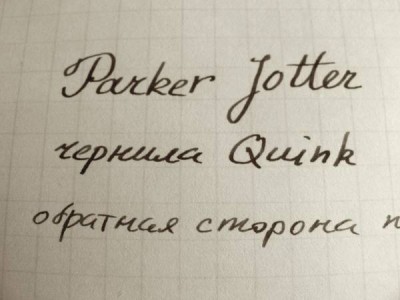 Parker Jotter
чернила Quink
обратная сторона п